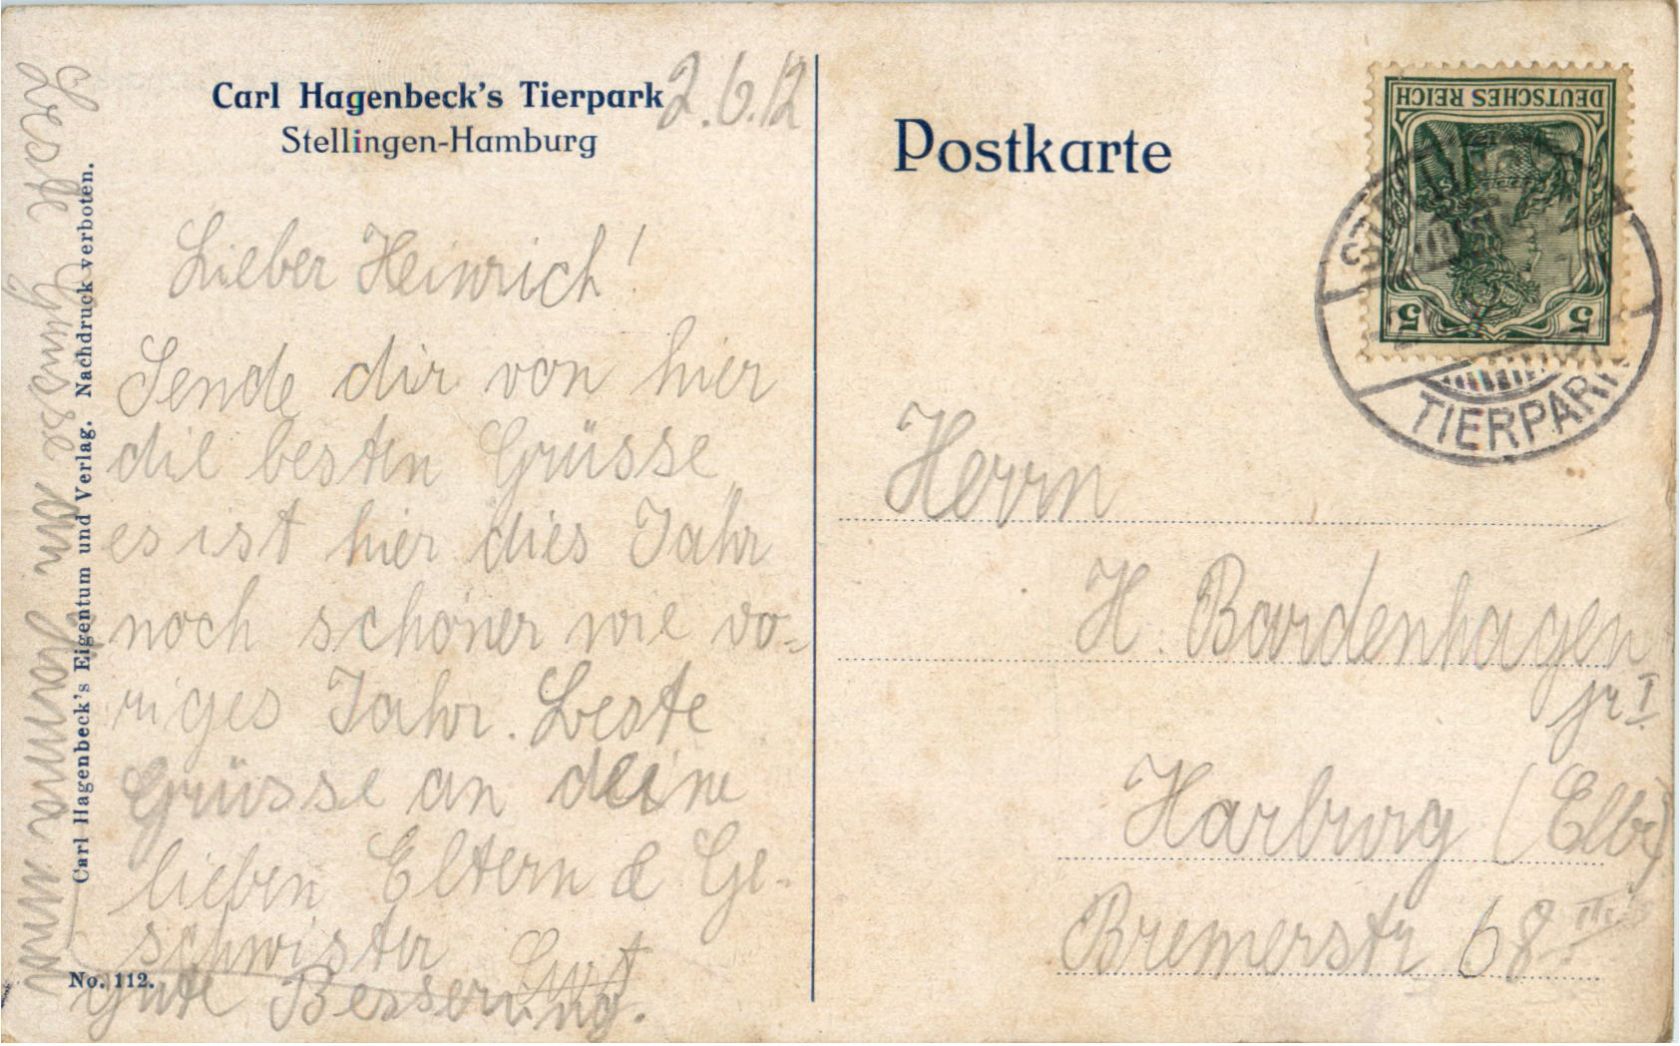 Carl Hagenbeck's Tierpark
Stellingen-Hamburg
2.6.12
Lieber Heinrich!
Sende dir von hier
die besten Grüsse
es ist hier dies Jahr
noch schöner wie vo=
riges Jahr. Beste
Grüsse an deine
lieben Eltern & Ge-
schwister
Gust
gute Besserung.
Beste Grüsse an
Carl Hagenbeck's Eigentum und Verlag. Nachdruck verboten.
No. 112.
Postkarte
DEUTSCHES REICH
5 5
TIERPARK
Herrn
H. Bardenhagen
jr I
Harburg (Elbe)
Bremerstr 68 III